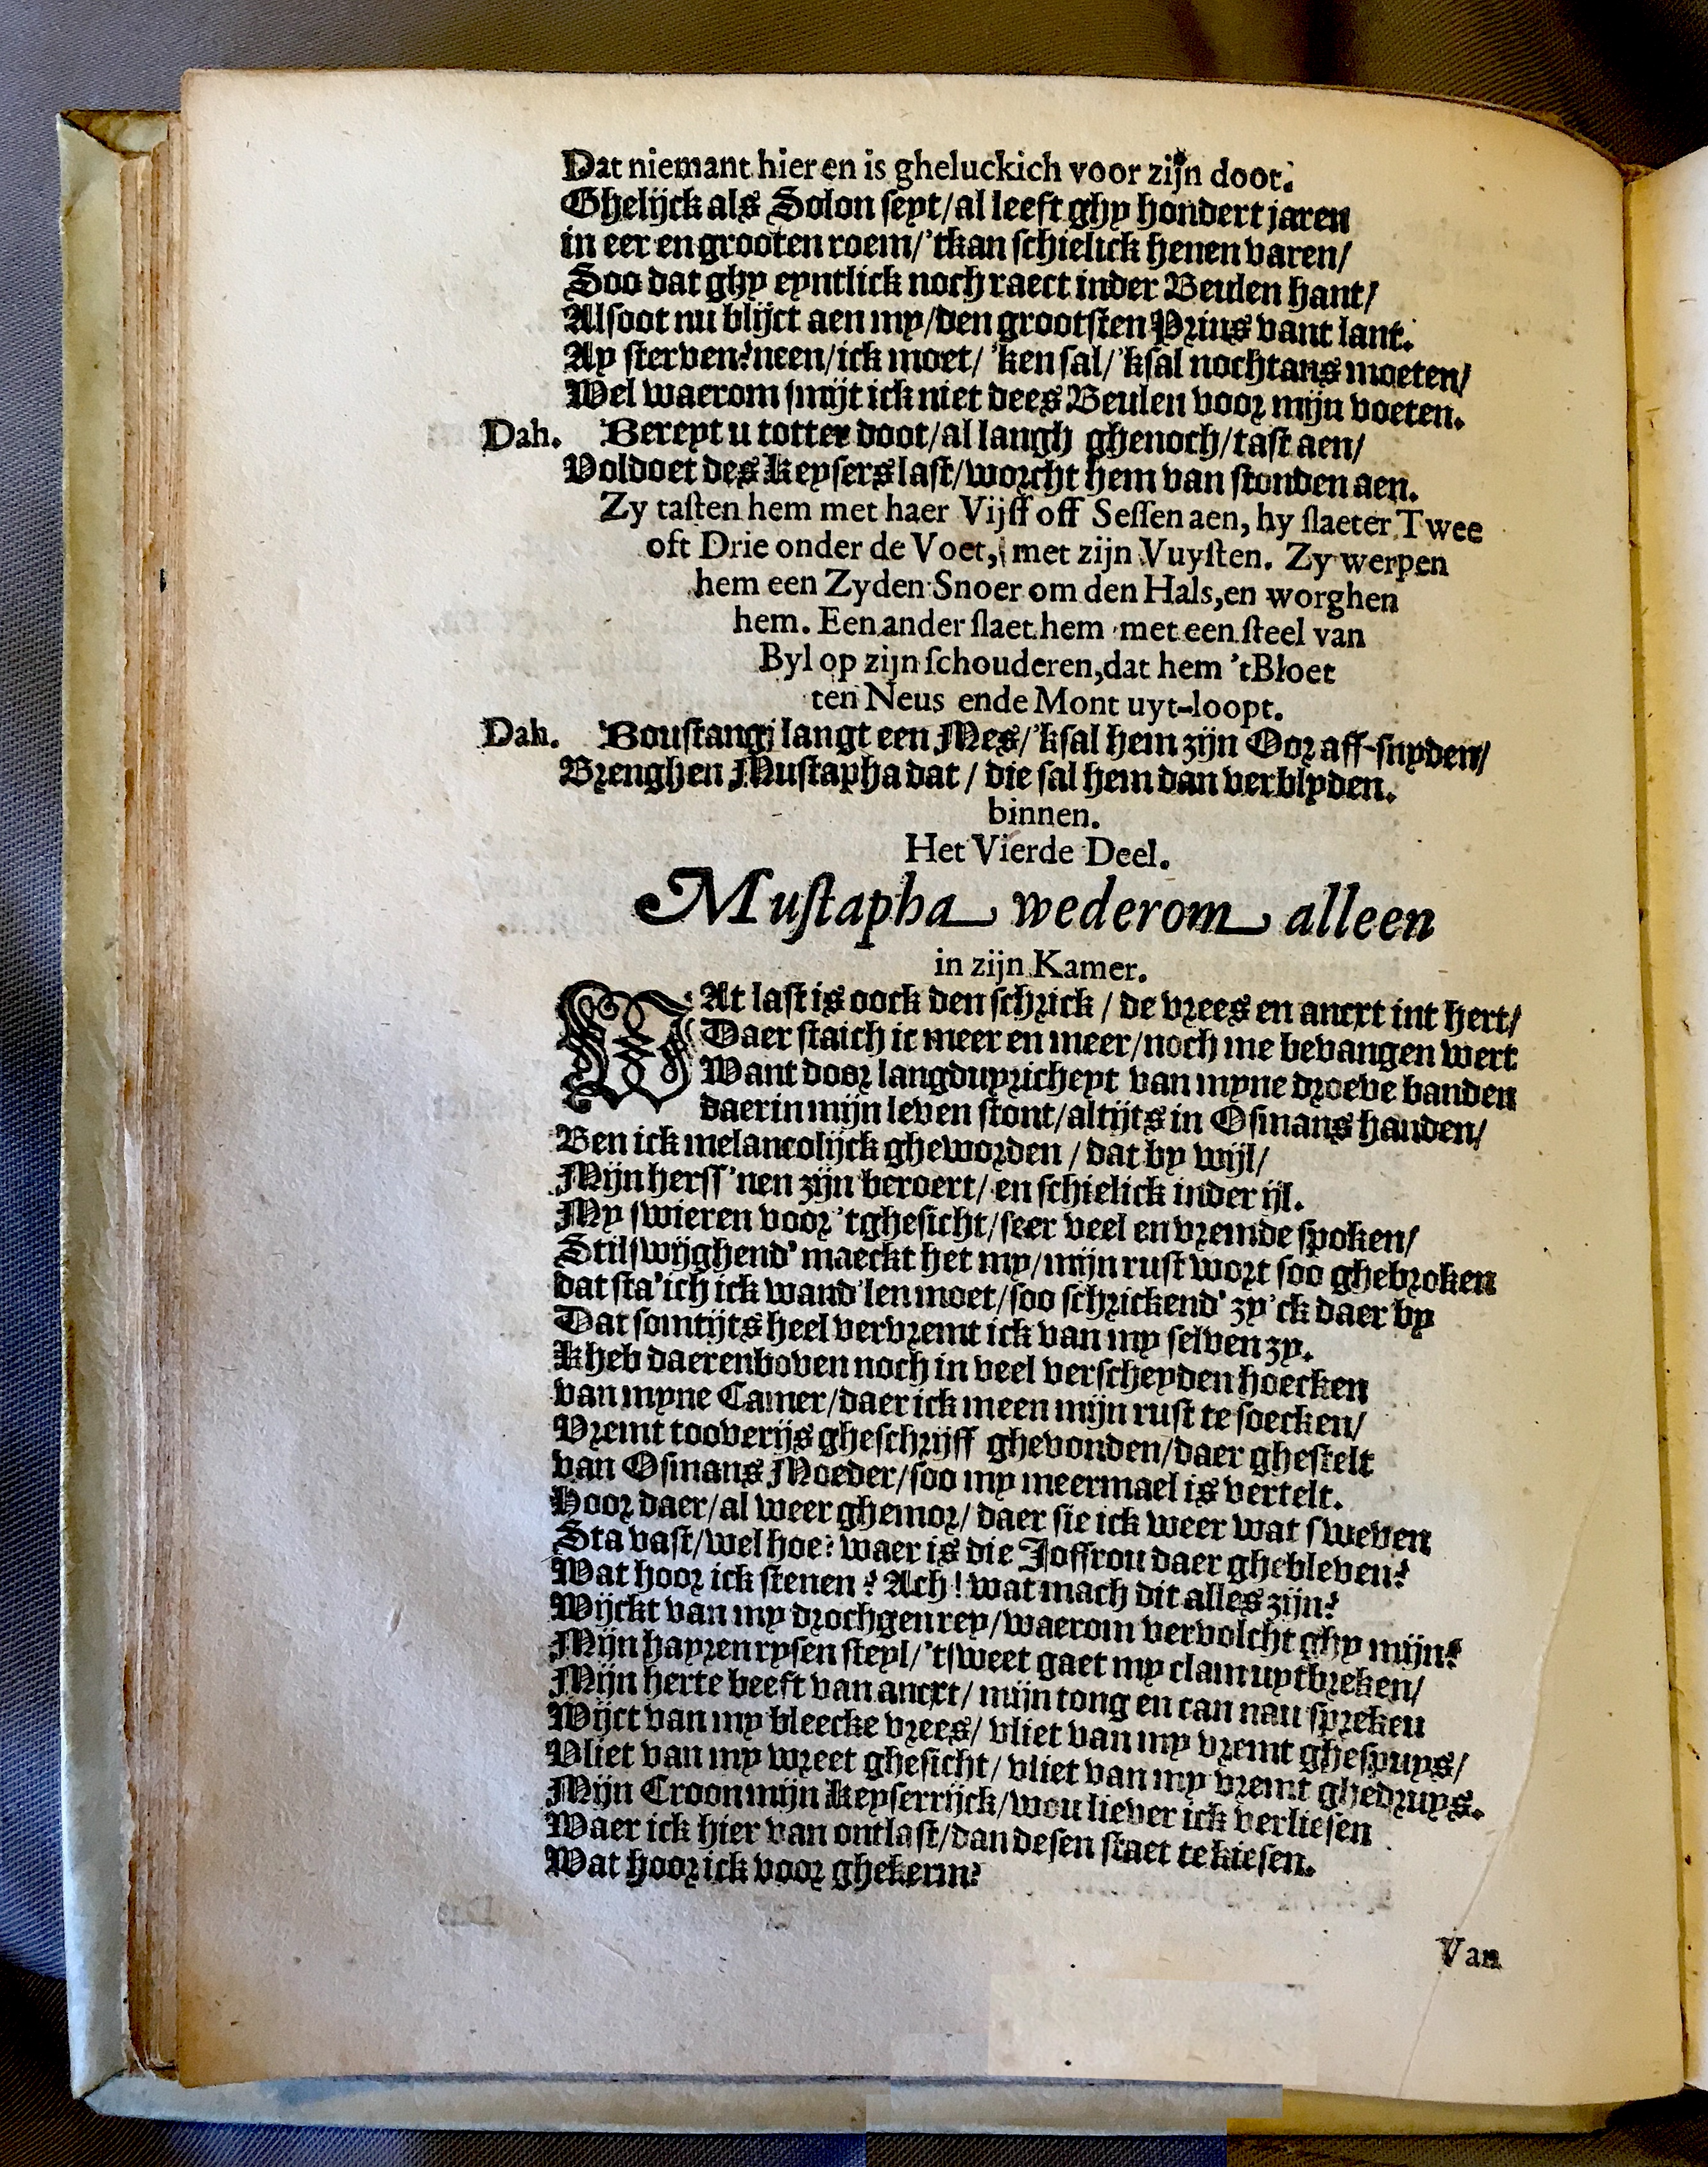 Dat niemant hier en is gheluckich voor zijn doot.
Ghelijck als Solon seyt/al leeft ghy hondert jaren
in eer en grooten roem/'tkan schielick henen varen/
Soo dat ghy eyntlick noch raect inder Beulen hant/
Alsoot nu blijct aen my/den grootsten Prins vant lant.
Ay sterven? neen/ick moet/ 'ken sal/'ksal nochtans moeten/
Wel waerom smijt ick niet dees Beulen voor mijn voeten.
Dah. Bereyt u totter doot/al langh ghenoch/tast aen/
Voldoet des Keysers last/worcht hem van stonden aen.
Zy tasten hem met haer Vijff off Sessen aen, hy slaeter Twee
oft Drie onder de Voet, met zijn Vuysten. Zy werpen
hem een Zyden Snoer om den Hals,en worghen
hem. Een ander slaet hem met een steel van
Byl op zijn schouderen,dat hem 'tBloet
ten Neus ende Mont uyt-loopt.
Dah. Boustangi langt een Mes/'ksal hem zijn Oor aff-snyden/
Brenghen Mustapha dat / die sal hem dan verblyden.
binnen.
Het Vierde Deel.
Mustapha wederom alleen
in zijn Kamer.
WAt last is oock den schrick / de vrees en ancxt int hert/
Daer staich ic meer en meer/noch me bevangen wert
Want door langduyricheyt van myne droeve banden
daerin mijn leven stont/altijts in Osmans handen/
Ben ick melancolijck gheworden / dat by wijl/
Mijn herss'nen zijn beroert/ en schielick inder ijl.
My swieren voor 'tghesicht/seer veel en vremde spoken/
Stilswijghend' maeckt het my/mijn rust wort soo ghebroken
dat sta'ich ick wand'len moet/soo schrickend' zy'ck daer by
Dat somtijts heel vervremt ick van my selven zy.
Kheb daerenboven noch in veel verscheyden hoecken
van myne Camer/daer ick meen mijn rust te soecken/
Vremt tooverijs gheschrijff ghevonden/daer ghestelt
van Osmans Moeder/soo my meermael is vertelt.
Hoor daer/al weer ghemor/ daer sie ick weer wat sweven
Sta vast/wel hoe? waer is die Joffrou daer ghebleven?
Wat hoor ick stenen? Ach! wat mach dit alles zijn?
Wijckt van my drochgen rey/waerom vervolcht ghy mijn?
Mijn hayren rysen steyl/'tsweet gaet my clam uytbreken/
Mijn herte beeft van ancxt/ mijn tong en can nau spreken
Wijct van my bleecke vrees/ vliet van my vremt ghespuys/
Vliet van my wreet ghesicht/ vliet van my vremt ghedruys.
Mijn Croon mijn Keyserrijck/wou liever ick verliesen
Waer ick hier van ontlast/dan desen staet te kiesen.
Wat hoor ick voor ghekerm?
Van